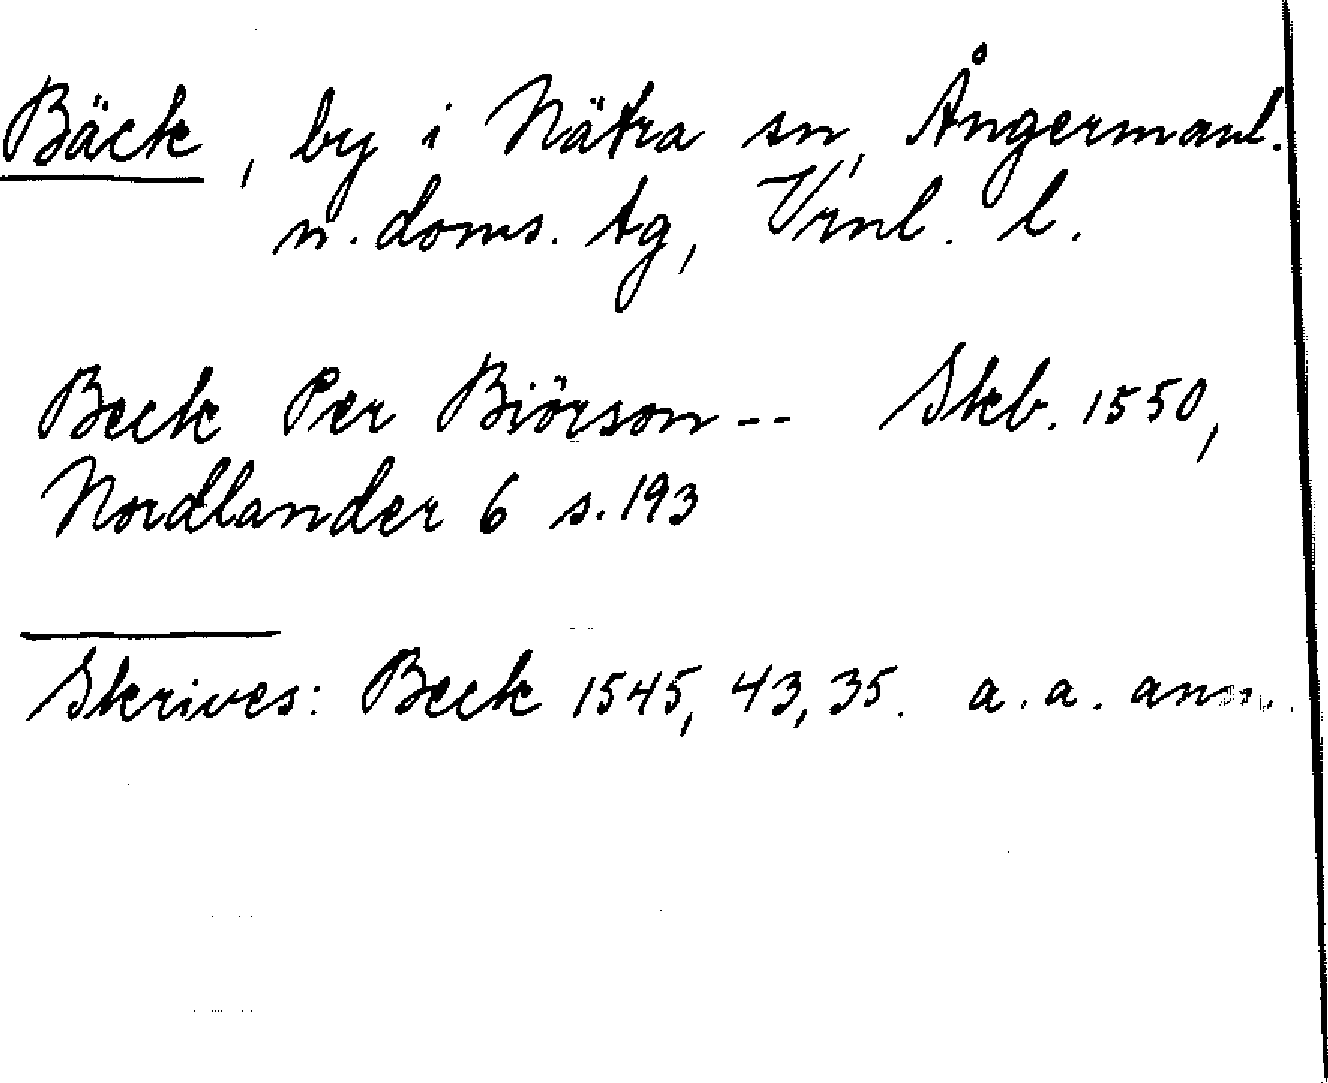 Bäck, by i Nätra sn, Ångermanl.
n. doms. tg, Vrnl. l.
Beck Per Biörson -- Skb. 1550,
Nordlander 6 s. 193
Skrives: Beck 1545, 43, 35. a. a. anm.